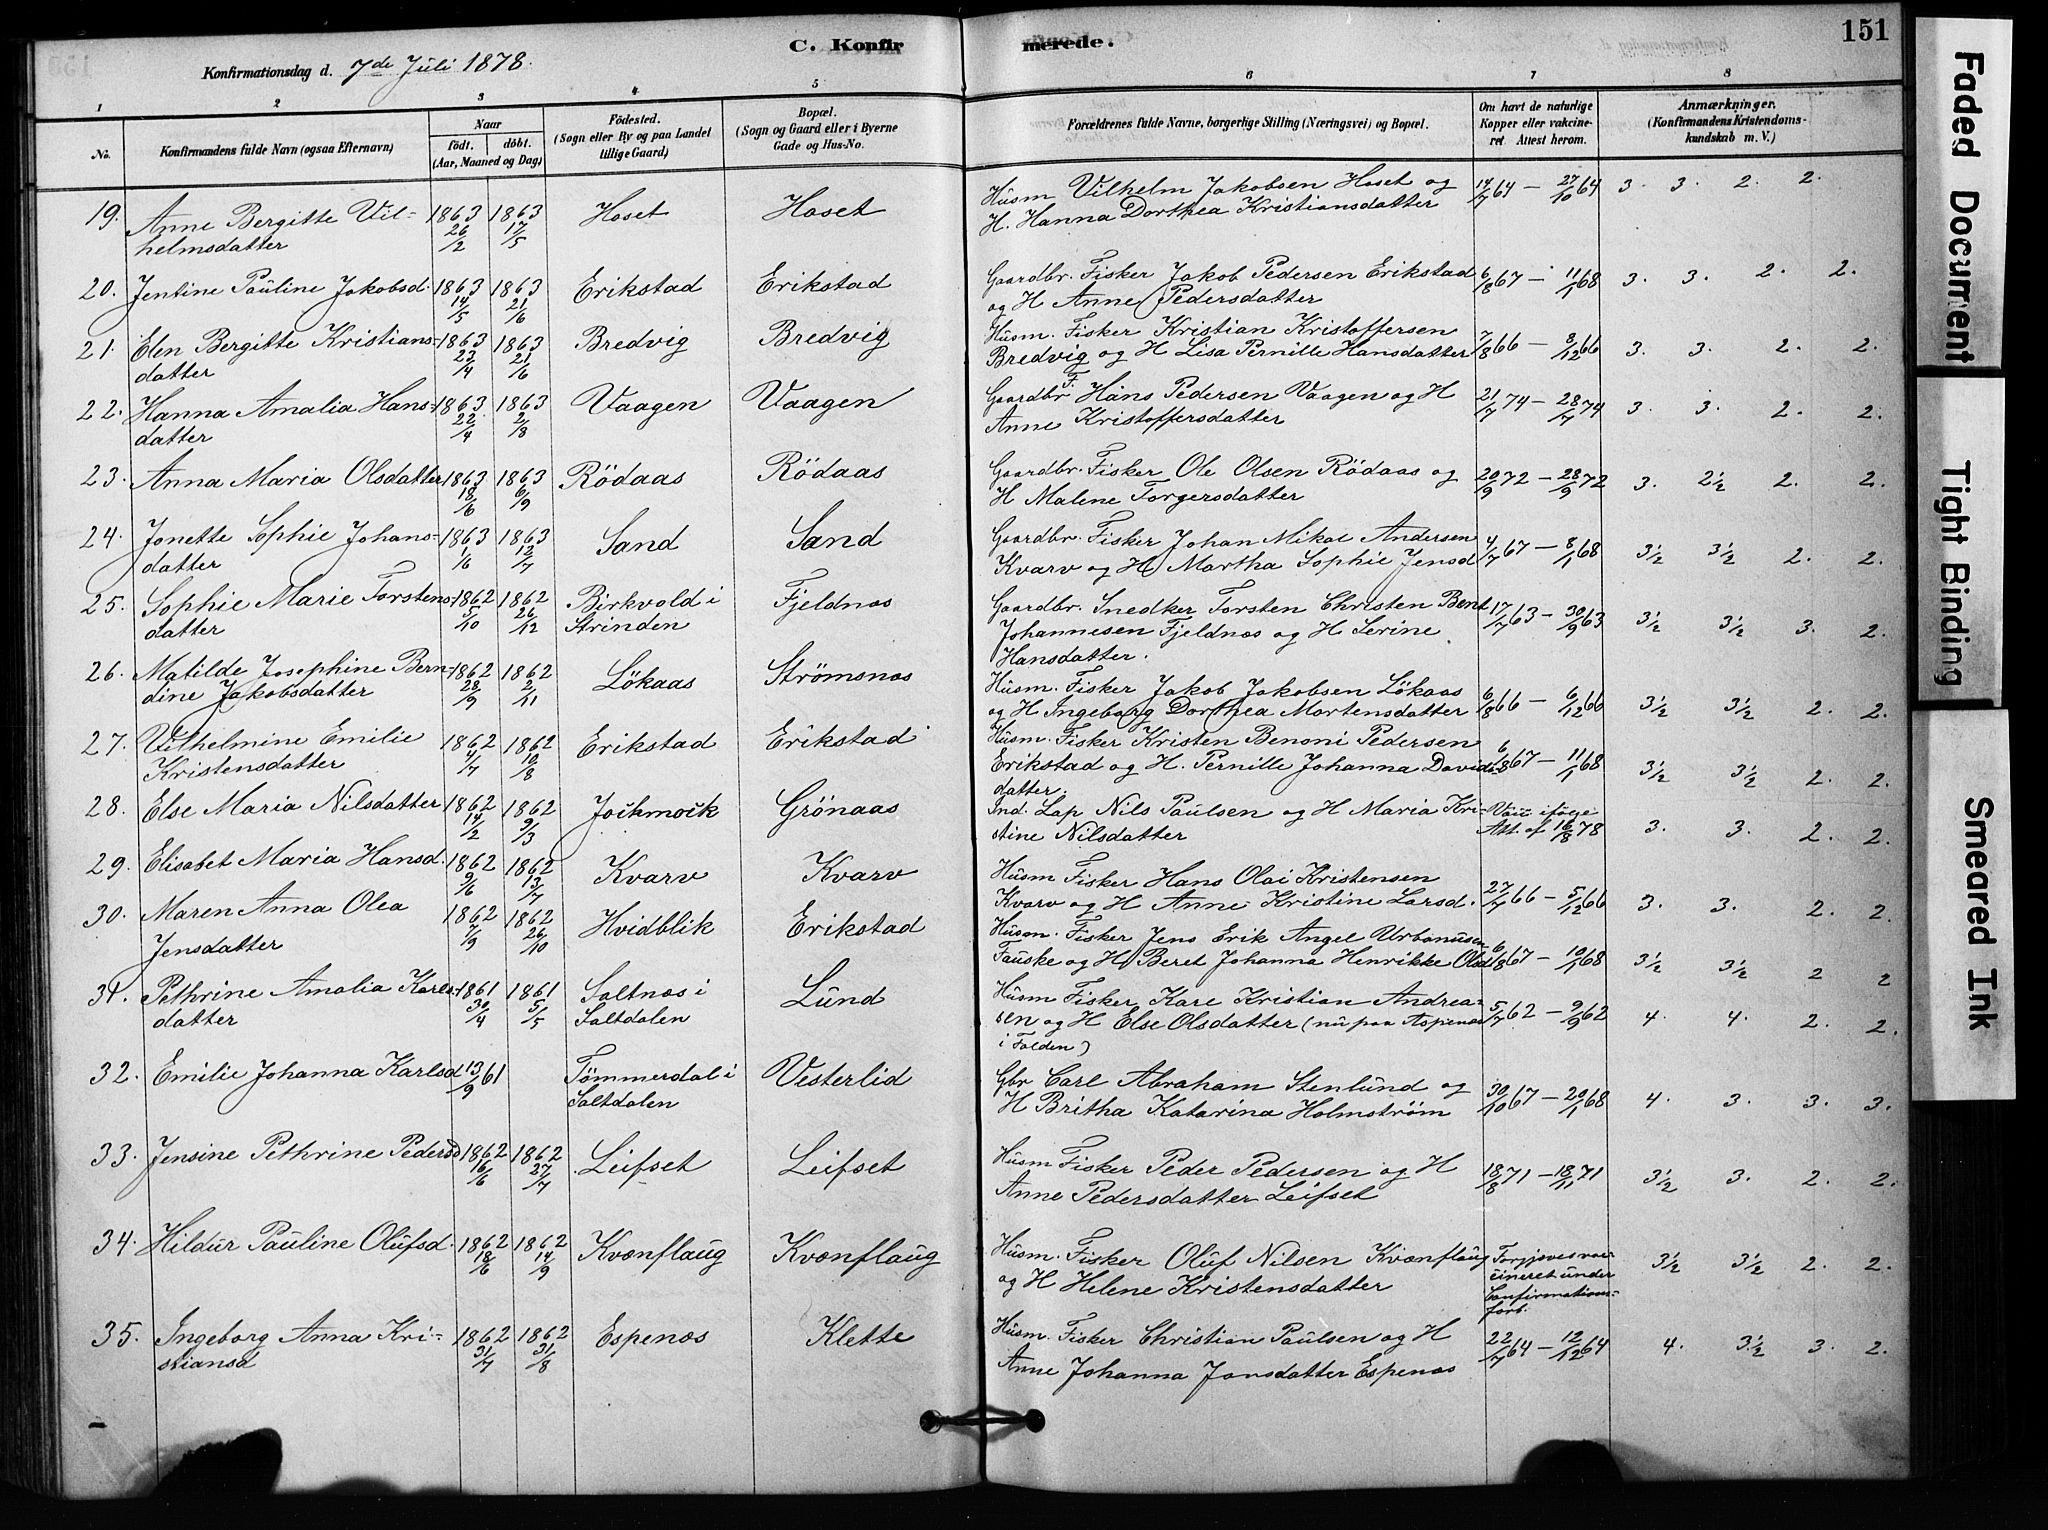 C. Konfirmerede.
151
Konfirmationsdag d. 7de Juli 1878.
1 2 3 4 5 6 7 8
No.
Konfirmandens fulde Navn (ogsaa Efternavn)
Naar
födt. döbt.
(Aar, Maaned og Dag)
Födested.
(Sogn eller By og paa Landet
tillige Gaard)
Bopæl.
(Sogn og Gaard eller i Byerne
Gade og Hus-No.
Forældrenes fulde Navne, borgerlige Stilling (Næringsvei) og Bopæl.
Om havt de naturlige
Kopper eller vakcine-
ret Attest herom.
Anmærkninger.
(Konfirmandens Kristendoms-
kundskab m. V.)
19. Anne Bergitte Vil- 1863 1863 Hoset Hoset Husm Vilhelm Jakobsen Hoset og 14/7 64 — 27/10 64 3. 3. 2. 2.
helmsdatter 26/2 17/5 H. Hanna Dorthea Kristiansdatter
20. Jentine Pauline Jakobsd. 1863 1863 Erikstad Erikstad Gaardbr. Fisker Jakob Pedersen Erikstad 6/8 67 — 11/1 68 3. 3. 2. 2.
14/5 21/6 og H Anne Pedersdatter
21. Elen Bergitte Kristians- 1863 1863 Bredvig Bredvig Husm. Fisker Kristian Kristoffersen 7/8 66 — 8/12 66 3. 3. 2. 2.
datter 23/4 21/6 Bredvig og H Lisa Pernille Hansdatter
22. Hanna Amalia Hans- 1863 1863 Vaagen Vaagen Gaardbr F. Hans Pedersen Vaagen og H 21/7 74 — 28/7 74 3. 3. 2. 2.
datter 22/4 2/8 Anne Kristoffersdatter
23. Anna Maria Olsdatter 1863 1863 Rödaas Rödaas Gaardbr. Fisker Ole Olsen Rödaas og 20/9 72 — 28/9 72 3. 2½ 2. 2.
18/6 6/9 H Malene Torgersdatter
24. Jonette Sophie Johans- 1863 1863 Sand Sand Gaardbr. Fisker Johan Mikal Andersen 4/7 67 — 8/1 68 3½ 3½ 2. 2.
datter 1/6 12/7 Kvarv og H Martha Sophie Jensd
25. Sophie Marie Torstens- 1862 1862 Birkvold i Fjeldnæs Gaardbr. Snedker Torsten Christen Bent 17/7 63 — 30/9 63 3½ 3½ 3. 2.
datter 5/10 26/12 Strinden Johannesen Fjeldnæs og H Serine
Hansdatter.
26. Matilde Josephine Bern- 1862 1862 Lökaas Strömsnæs Husm. Fisker Jakob Jakobsen Lökaas 6/8 66 — 6/12 66 3½ 3½ 2. 2.
dine Jakobsdatter 28/9 2/11 og H Ingeborg Dorthea Mortensdatter
27. Vilhelmine Emilie 1862 1862 Erikstad Erikstad Husm. Fisker Kristen Benoni Pedersen 6/8 67 — 11/1 68 3½ 3½ 2. 2.
Kristensdatter 4/7 10/8 Erikstad og H. Pernille Johanna Davids-
datter.
28. Else Maria Nilsdatter 1862 1862 Jockmock Grönaas Ind. Lap Nils Paulsen og H Maria Kri- Att. af 16/8 78 3. 3. 2. 2.
14/2 9/3 stine Nilsdatter
29. Elisabet Maria Hansd. 1862 1862 Kvarv Kvarv Husm Fisker Hans Olai Kristensen 27/7 66 — 5/12 66 3. 3. 2. 2.
9/6 13/7 Kvarv og H Anne Kristine Larsd.
30. Maren Anna Olea 1862 1862 Hvidblik Erikstad Husm. Fisker Jens Erik Angel Urbanusen 6/8 67 — 10/1 68 3½ 3½ 2 2
Jensdatter 7/9 26/10 Fauske og H Beret Johanna Henrikke Olsd
31. Pethrine Amalia Karls- 1861 1861 Saltnæs i Lund Husm Fisker Karl Kristian Andrea- 5/7 62 — 9/9 62 4. 4. 2. 2.
datter 30/4 5/5 Saltdalen sen og H Else Olsdatter (nu paa Aspenæs
i Folden)
32. Emilie Johanna Karlsd 13/9 61 Tömmerdal i Vesterlid Gbr Carl Abraham Stenlund og 30/10 67 — 20/1 68 4. 3. 3. 3.
Saltdalen H Britha Katarina Holmström
33. Jensine Pethrine Pedersd 1862 1862 Leifset Leifset Husm Fisker Peder Pedersen og H 18/8 71 — 18/11 71 3½ 3. 2. 2.
16/6 27/7 Anne Pedersdatter Leifset
34. Hildur Pauline Olufsd. 1862 1862 Kvænflaug Kvænflaug Husm. Fisker Oluf Nilsen Kvænflaug Forgjæves vac- 3½ 3½ 2. 2.
18/6 14/9 og H Helene Kristensdatter cineret under
Confirmations-
forb.
35. Ingeborg Anna Kri- 1862 1862 Espenæs Klette Husm. Fisker Christian Paulsen og H 22/7 64 — 12/12 64 4. 3½ 3. 2.
stiansd 31/7 31/8 Anne Johanna Jonsdatter Espenæs
Faded Document
Tight Binding
Smeared Ink